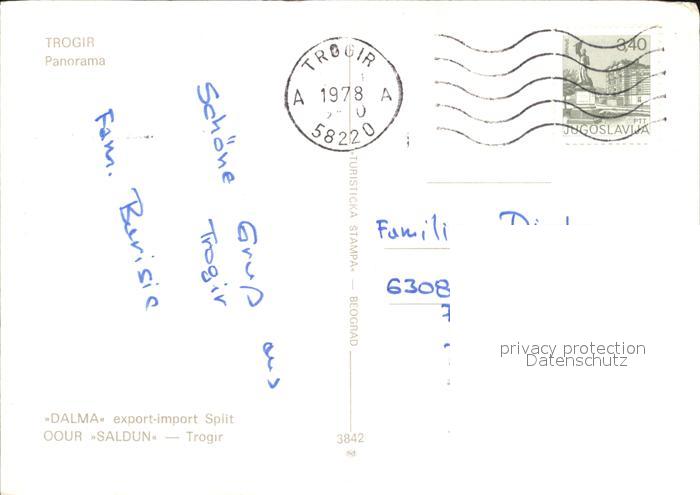 TROGIR
Panorama
TROGIR
A 1978 A
58220
3,40
PTT
JUGOSLAVIJA
Schöne Gruß aus
Trogir
Fam. Barisic
»TURISTIČKA ŠTAMPA« — BEOGRAD
Famili
6308
privacy protection
Datenschutz
»DALMA« export-import Split
OOUR »SALDUN« — Trogir
3842